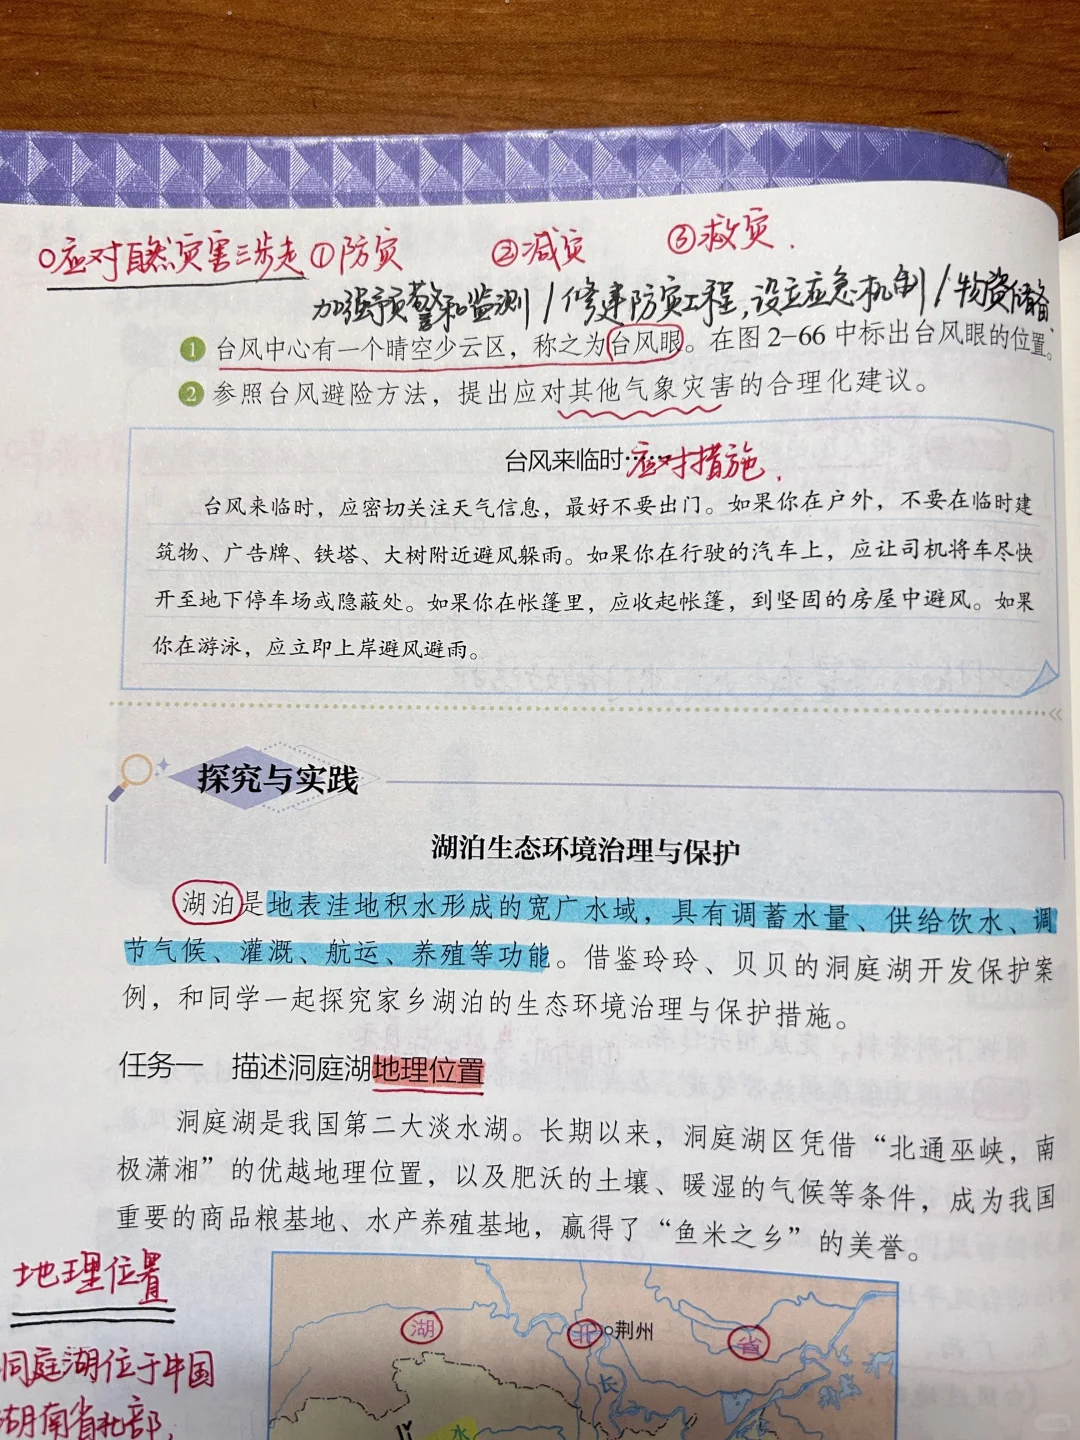 应对自然灾害三步走 ①防灾 ②减灾 ③救灾.
加强预警和监测 / 修建防灾工程,设立应急机制 / 物资储备.
1 台风中心有一个晴空少云区，称之为台风眼。在图2-66中标出台风眼的位置。
2 参照台风避险方法，提出应对其他气象灾害的合理化建议。
台风来临时……应对措施.
台风来临时，应密切关注天气信息，最好不要出门。如果你在户外，不要在临时建
筑物、广告牌、铁塔、大树附近避风躲雨。如果你在行驶的汽车上，应让司机将车尽快
开至地下停车场或隐蔽处。如果你在帐篷里，应收起帐篷，到坚固的房屋中避风。如果
你在游泳，应立即上岸避风避雨。
探究与实践
湖泊生态环境治理与保护
湖泊是地表洼地积水形成的宽广水域，具有调蓄水量、供给饮水、调
节气候、灌溉、航运、养殖等功能。借鉴玲玲、贝贝的洞庭湖开发保护案
例，和同学一起探究家乡湖泊的生态环境治理与保护措施。
任务一 描述洞庭湖地理位置
洞庭湖是我国第二大淡水湖。长期以来，洞庭湖区凭借“北通巫峡，南
极潇湘”的优越地理位置，以及肥沃的土壤、暖湿的气候等条件，成为我国
重要的商品粮基地、水产养殖基地，赢得了“鱼米之乡”的美誉。
地理位置
洞庭湖位于中国
湖南省北部,
湖 北 省
荆州
长
水